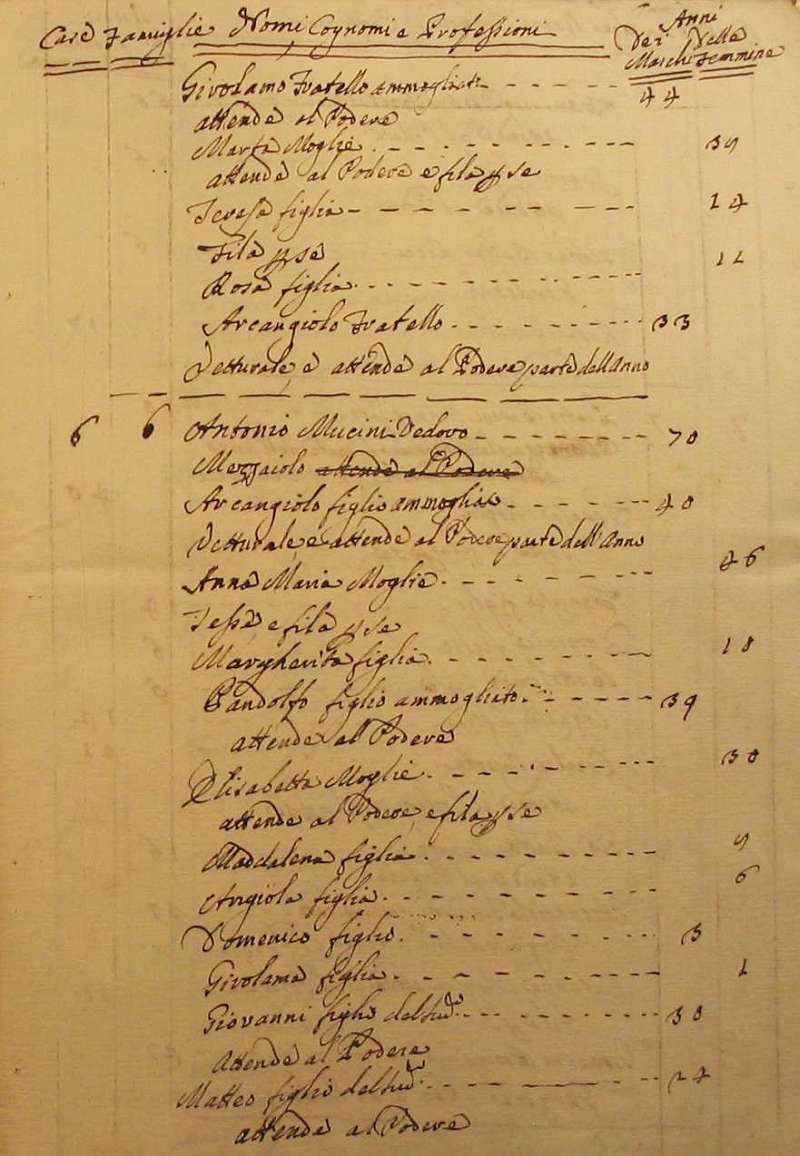 Case Famiglie Nomi, Cognomi e Professioni Anni
Dei Maschi Delle Femmine
Girolamo Fratello ammogliato 44
attende al Podere
Marta Moglie 39
attende al Podere e fila p se
Teresa figlia 14
Fila p se
Rosa figlia 11
Arcangiolo Fratello 33
Vetturale e attende al Podere parte dell Anno
6 6 Antonio Mucini Vedovo 70
Mezzaiolo attende al Podere
Arcangiolo figlio ammogliato 40
Vetturale e attende al Podere parte dell'Anno
Anna Maria Moglie 46
Tesse e fila p se
Margherita figlia 18
Pandolfo figlio ammogliato 39
attende al Podere
Elisabetta Moglie 30
attende al Podere, e fila p se
Maddalena figlia 9
Angiola figlia 6
Domenico figlio 3
Girolama figlia 1
Giovanni figlio del sud.o 30
Attende al Podere
Matteo figlio del sud.o 24
attende al Podere